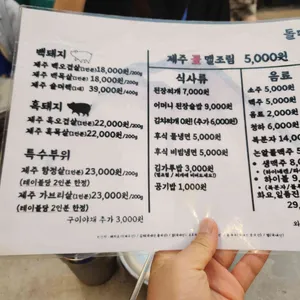 백돼지
제주 백오겹살(1인분) 18,000원/200g
제주 백목살(1인분) 18,000원/200g
39,000원/400g
흑돼지
제주 흑오겹살(1인분) 22,000원/200g
제주 흑목살(1인분) 22,000원/200g
특수부위
제주 항정살(1인분) 23,000원/200g
(테이블당 2인분 한정)
제주 가브리살(1인분) 23,000원/200g
(테이블당 2인분 한정)
구이야채 추가 3,000원
제주 멜조림 5,000원
식사류
된장찌개 7,000원
어머니 된장술밥 9,000원
김치찌개 0원 (추가 6,000원)
후식 물냉면 5,000원
후식 비빔냉면 5,000원
김가루밥 3,000원
공기밥 1,000원
음료
소주 5,000
맥주 5,000
음료 2,000
청하 6,000
복분자
생맥주
하이볼